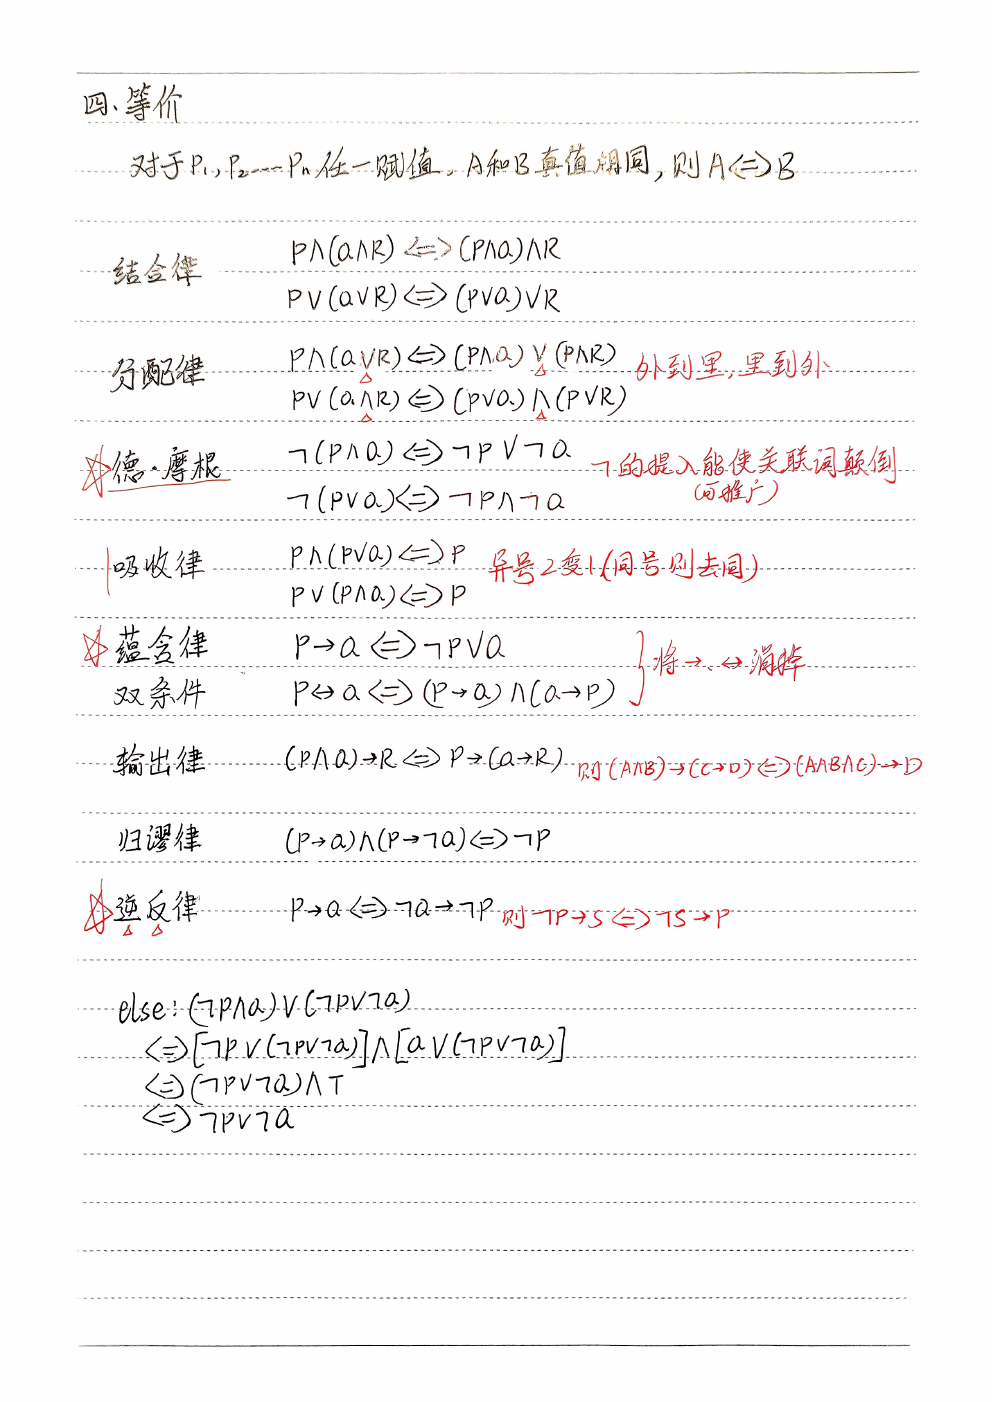 四、等价
对于P₁,P₂----Pₙ任一赋值,A和B真值相同,则A<=>B
结合律 P∧(Q∧R)<=>(P∧Q)∧R
P∨(Q∨R)<=>(P∨Q)∨R
分配律 P∧(Q∨R)<=>(P∧Q)∨(P∧R) 外到里,里到外
P∨(Q∧R)<=>(P∨Q)∧(P∨R)
☆德·摩根 ¬(P∧Q)<=>¬P∨¬Q ¬的提入能使关联词颠倒
¬(P∨Q)<=>¬P∧¬Q (可推广)
吸收律 P∧(P∨Q)<=>P 异号2变1(同号则去同)
P∨(P∧Q)<=>P
☆蕴含律 P→Q<=>¬P∨Q
双条件 P↔Q<=>(P→Q)∧(Q→P) }将→、↔消掉
输出律 (P∧Q)→R<=>P→(Q→R) 则(A∧B)→(C→D)<=>(A∧B∧C)→D
归谬律 (P→Q)∧(P→¬Q)<=>¬P
☆逆反律 P→Q<=>¬Q→¬P 则¬P→S<=>¬S→P
else:(¬P∧Q)∨(¬P∨¬Q)
<=>[¬P∨(¬P∨¬Q)]∧[Q∨(¬P∨¬Q)]
<=>(¬P∨¬Q)∧T
<=>¬P∨¬Q